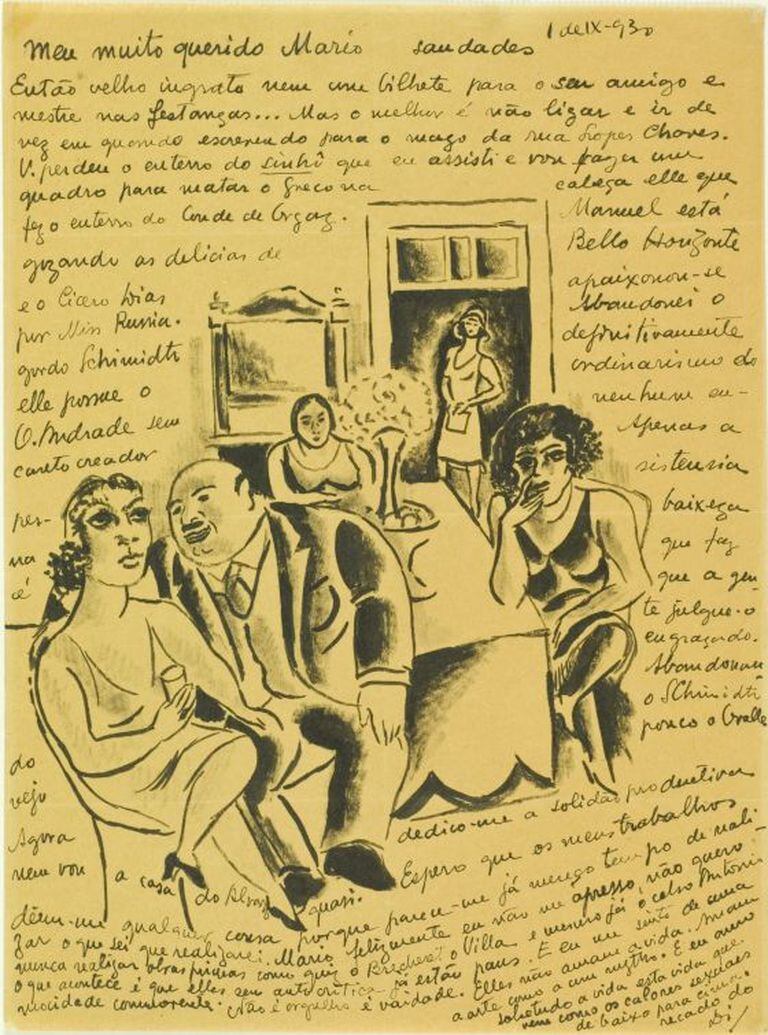 1 de IX-930
Meu muito querido Mario saudades
Então velho ingrato nem um bilhete para o seu amigo e
mestre nas festanças... Mas o melhor é não ligar e ir de
vez em quando escrevendo para o mago da rua Lopes Chaves.
V. perdeu o enterro do Sinhô que eu assisti e vou fazer um
quadro para matar o Greco na
cabeça elle que
fez o enterro do Conde de Orgaz.
Manuel está
gozando as delicias de
Bello Horizonte
e o Cicero Dias
apaixonou-se
por Miss Russia.
Abandonei o
gordo Schimidt
definitivamente
elle possue o
ordinarismo do
O. Andrade sem
nenhum en-
canto creador
Apenas a
sistencia
pes-
baixeza
na
que faz
é
que a gen-
te julgue-o
engraçado.
Abandonou
o Schimidt
pouco o Ovalle
do
vejo
dedico-me a solidão productiva
Agora
Espero que os meus trabalhos
nem vou a casa do Alvaro quasi.
dêem-me qualquer cousa porque parece-me já menos tempo de reali-
zar o que sei que realizarei. Mario felizmente eu não me apresso, não quero
nunca realizar obras primas como quiz o Brecheret o Villa e mesmo já o Celso Antonio
o que acontece é que elles sem autocritica já estão paus. E eu me sinto de uma
mocidade commovente. Não é orgulho é vaidade. Elles não amam a vida. Amam
a arte como a um mytho. E eu amo
sobretudo a vida esta vida que
vem como os calores sexuaes
de baixo para cima.
recado do
Di